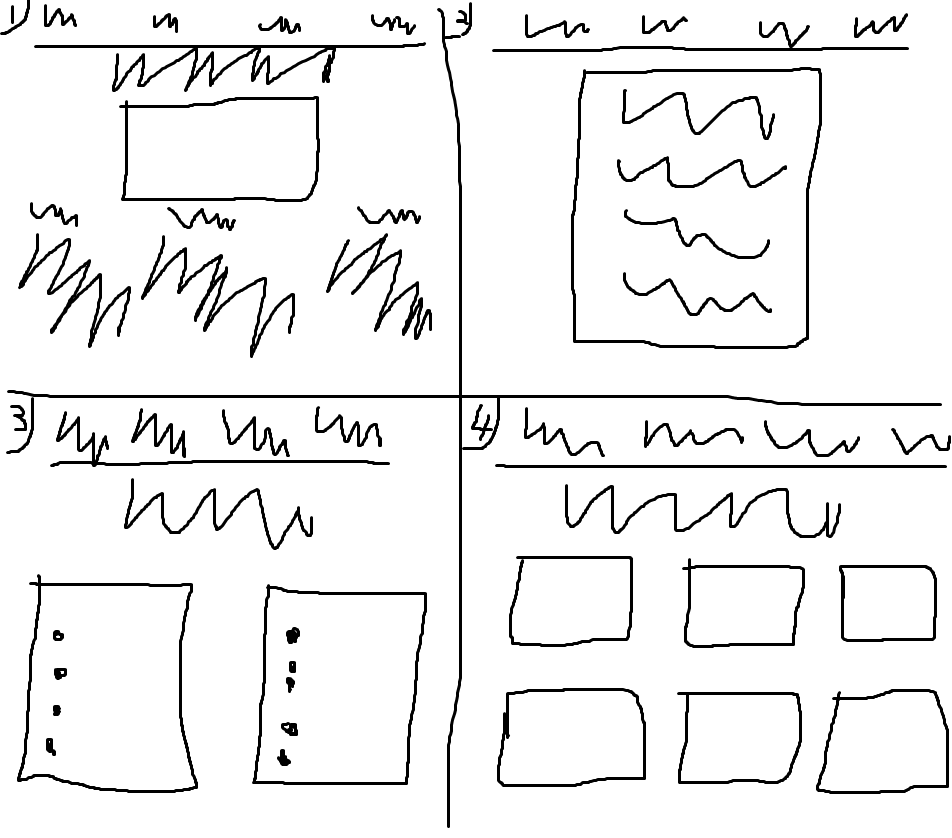 1)
2)
3)
4)